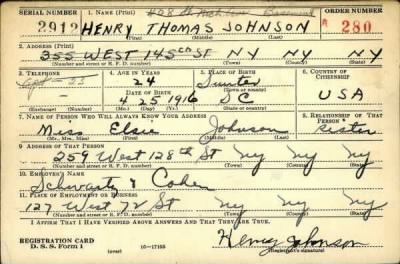 SERIAL NUMBER 1. NAME (Print) ORDER NUMBER
2912 HENRY THOMAS JOHNSON A 280
(First) (Middle) (Last)
2. ADDRESS (Print)
355 WEST 145th ST NY NY NY
(Number and street or R. F. D. number) (Town) (County) (State)
3. TELEPHONE 4. AGE IN YEARS 5. PLACE OF BIRTH 6. COUNTRY OF CITIZENSHIP
24 Sumter
DATE OF BIRTH
4 25 1916 SC USA
(Exchange) (Number) (Mo.) (Day) (Yr.) (State or country)
7. NAME OF PERSON WHO WILL ALWAYS KNOW YOUR ADDRESS 8. RELATIONSHIP OF THAT PERSON
Miss Elsie Johnson Sister
(Mr., Mrs., Miss) (First) (Middle) (Last)
9. ADDRESS OF THAT PERSON
259 West 128th St Ny Ny Ny
(Number and street or R. F. D. number) (Town) (County) (State)
10. EMPLOYER'S NAME
Schwartz & Cohen
11. PLACE OF EMPLOYMENT OR BUSINESS
127 West 72 St Ny Ny Ny
(Number and street or R. F. D. number) (Town) (County) (State)
I AFFIRM THAT I HAVE VERIFIED ABOVE ANSWERS AND THAT THEY ARE TRUE.
REGISTRATION CARD
D. S. S. Form 1 (over) 16—17105 Henry Johnson
(Registrant's signature)